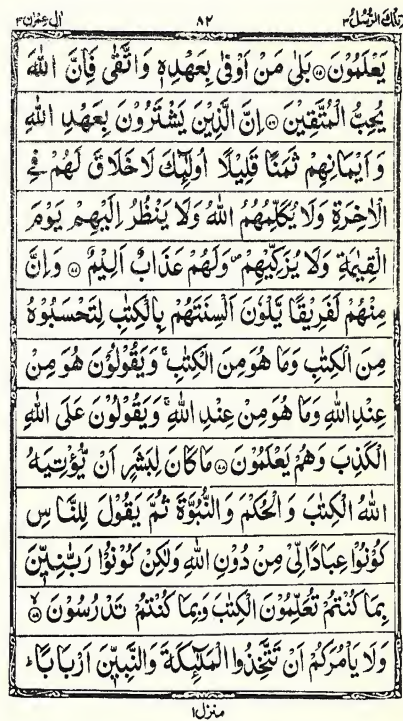 تلك الرسل ٣ ٨٢ اٰل عمرٰن ٣
يَعْلَمُوْنَ ۝ بَلٰى مَنْ اَوْفٰى بِعَهْدِهٖ وَاتَّقٰى فَاِنَّ اللّٰهَ
يُحِبُّ الْمُتَّقِيْنَ ۝ اِنَّ الَّذِيْنَ يَشْتَرُوْنَ بِعَهْدِ اللّٰهِ
وَاَيْمَانِهِمْ ثَمَنًا قَلِيْلًا اُولٰٓئِكَ لَا خَلَاقَ لَهُمْ فِى
الْاٰخِرَةِ وَلَا يُكَلِّمُهُمُ اللّٰهُ وَلَا يَنْظُرُ اِلَيْهِمْ يَوْمَ
الْقِيٰمَةِ وَلَا يُزَكِّيْهِمْ ۪ وَلَهُمْ عَذَابٌ اَلِيْمٌ ۝ وَاِنَّ
مِنْهُمْ لَفَرِيْقًا يَّلْوٗنَ اَلْسِنَتَهُمْ بِالْكِتٰبِ لِتَحْسَبُوْهُ
مِنَ الْكِتٰبِ وَمَا هُوَ مِنَ الْكِتٰبِ ۚ وَيَقُوْلُوْنَ هُوَ مِنْ
عِنْدِ اللّٰهِ وَمَا هُوَ مِنْ عِنْدِ اللّٰهِ ۚ وَيَقُوْلُوْنَ عَلَى اللّٰهِ
الْكَذِبَ وَهُمْ يَعْلَمُوْنَ ۝ مَا كَانَ لِبَشَرٍ اَنْ يُّؤْتِيَهُ
اللّٰهُ الْكِتٰبَ وَالْحُكْمَ وَالنُّبُوَّةَ ثُمَّ يَقُوْلَ لِلنَّاسِ
كُوْنُوْا عِبَادًا لِّىْ مِنْ دُوْنِ اللّٰهِ وَلٰكِنْ كُوْنُوْا رَبّٰنِيّٖنَ
بِمَا كُنْتُمْ تُعَلِّمُوْنَ الْكِتٰبَ وَبِمَا كُنْتُمْ تَدْرُسُوْنَ ۝ۙ
وَلَا يَاْمُرَكُمْ اَنْ تَتَّخِذُوا الْمَلٰٓئِكَةَ وَالنَّبِيّٖنَ اَرْبَابًا ؕ
منزل ١